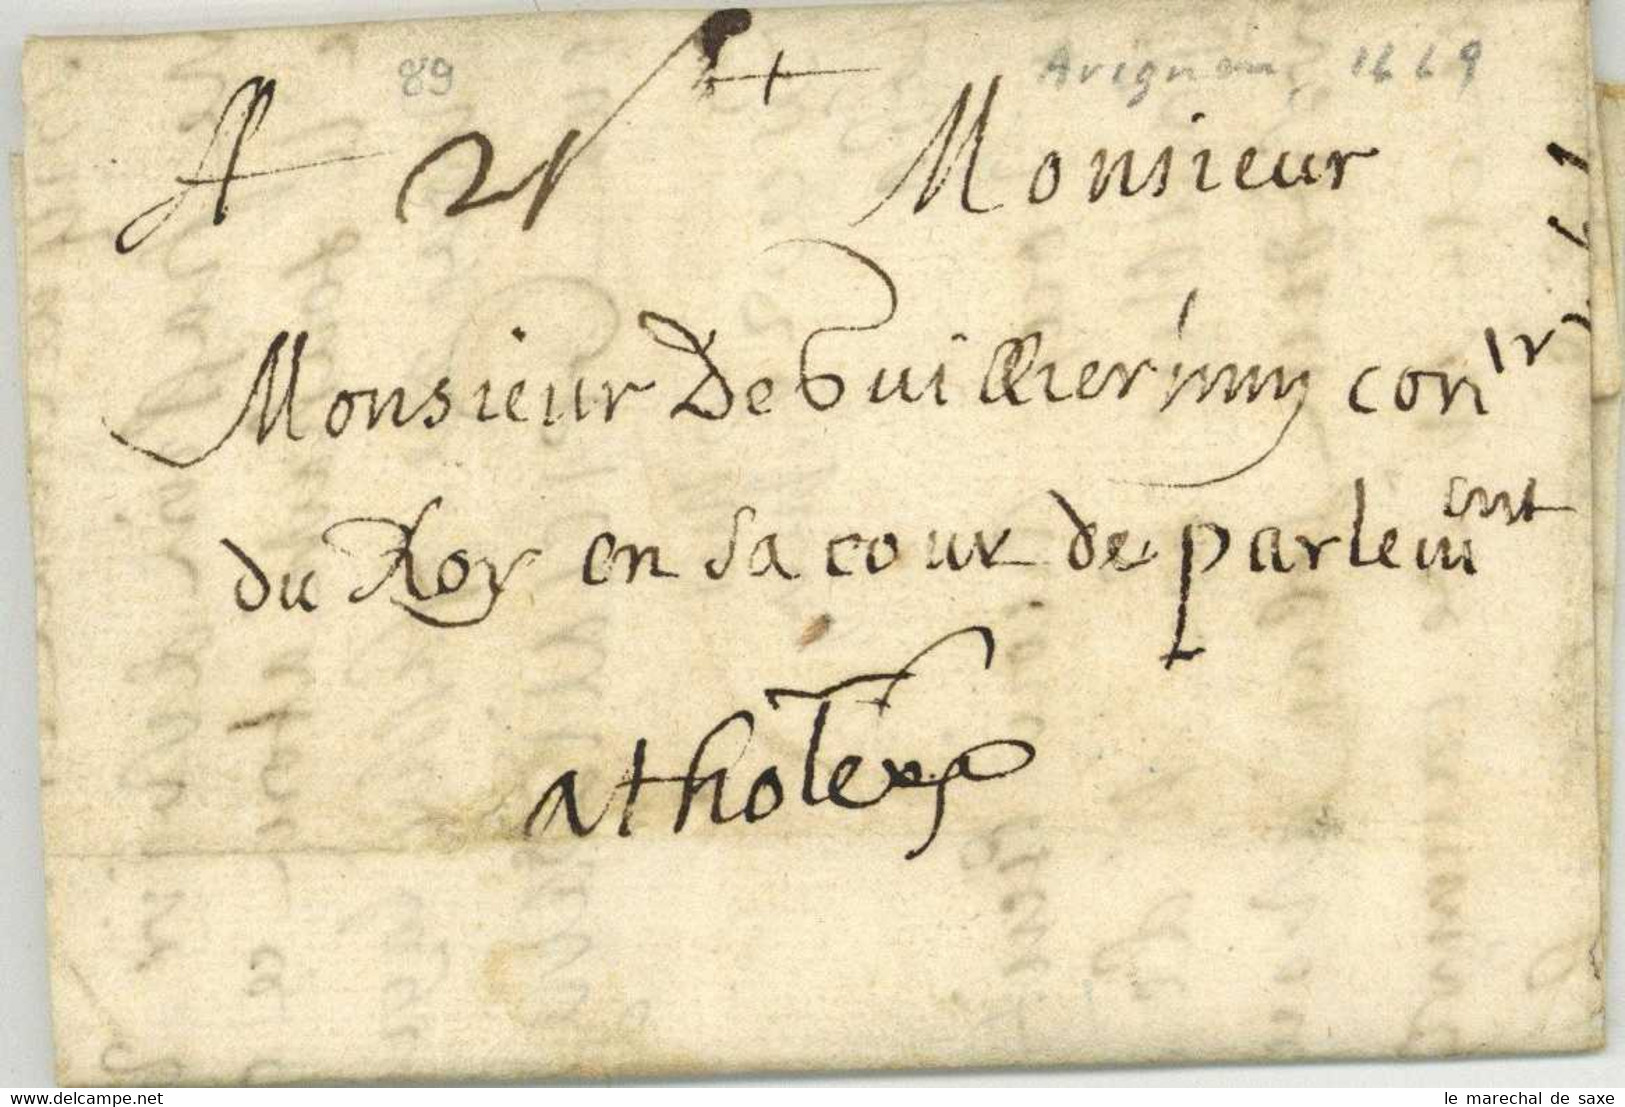 89
Avignon, 1669
A
Monsieur
Monsieur De Guillermin con.ir
du Roy en Sa cour de parlemt
a tholeze
www.delcampe.net
le marechal de saxe